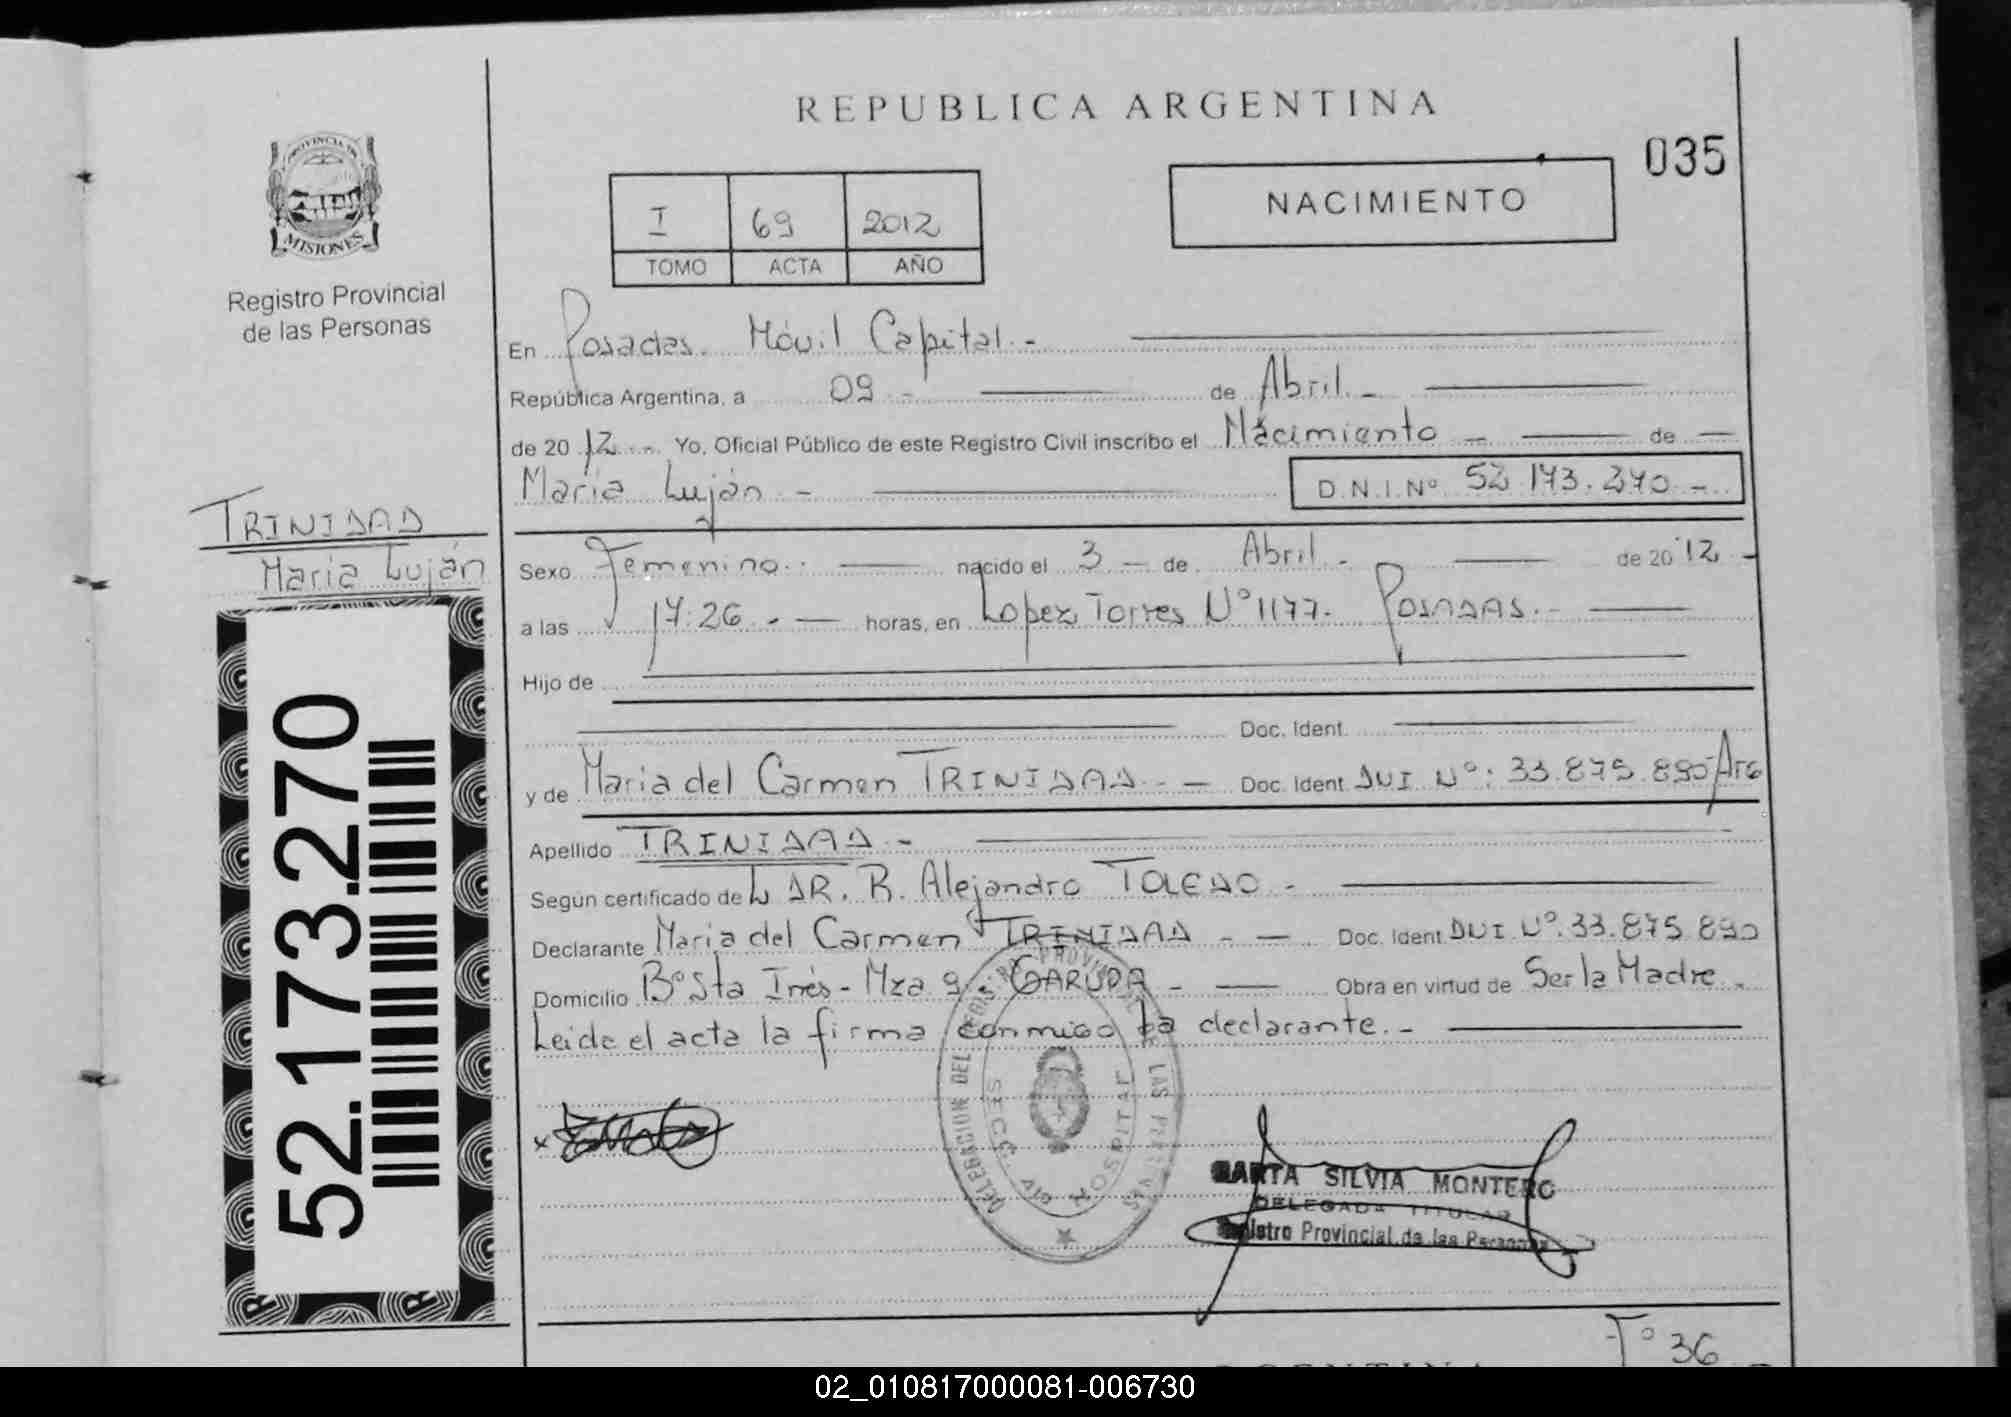 REPUBLICA ARGENTINA
035
PROVINCIA DE
MISIONES
Registro Provincial
de las Personas
I 69 2012
TOMO ACTA AÑO
NACIMIENTO
En Posadas. Móvil Capital.-
República Argentina, a 09 - de Abril.-
de 2012.- Yo, Oficial Público de este Registro Civil inscribo el Nacimiento - de
María Luján - D.N.I.Nº 52.173.270 -
TRINIDAD
María Luján
52.173.270
Sexo Femenino.- nacido el 3 - de Abril.- de 2012 -
a las 17:26.- horas, en Lopez Torres Nº 1177.- POSADAS.-
Hijo de
Doc. Ident.
y de Maria del Carmen TRINIDAD - Doc. Ident. DNI Nº: 33.875.890 Arg
Apellido TRINIDAD -
Según certificado de L DR. R. Alejandro TOLEDO -
Declarante Maria del Carmen TRINIDAD - Doc. Ident. DNI Nº. 33.875.890
Domicilio Bº Sta Inés - Mza 9 - GARUPA - Obra en virtud de Ser la Madre.
Leida el acta la firma conmigo la declarante.-
DELEGACION DEL REGISTRO PROVINCIAL DE LAS PERSONAS
SECC. VIA HOSPITAL
MARTA SILVIA MONTERO
DELEGADA TITULAR
Registro Provincial de las Personas
Tº 36
02_010817000081-006730